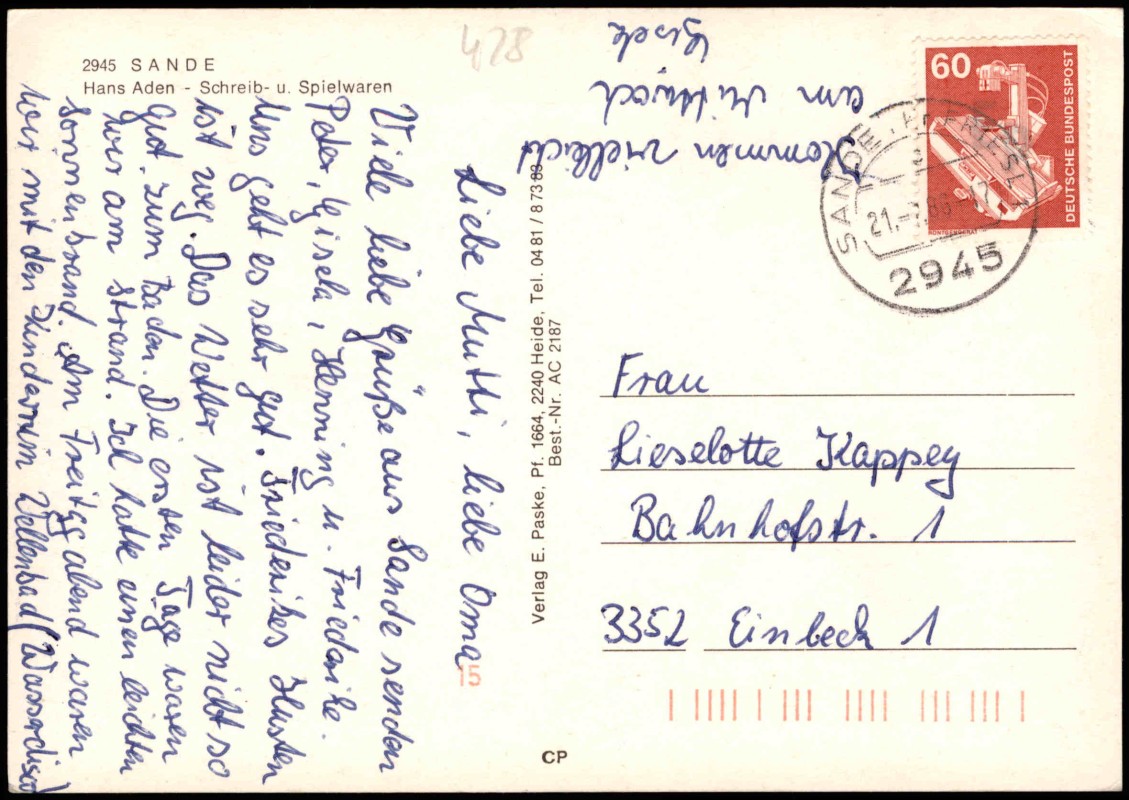 2945 SANDE
Hans Aden - Schreib- u. Spielwaren
Liebe Mutti, liebe Oma
Viele liebe Grüße aus Sande senden
Peter, Gisela, Henning u. Friederike.
Uns geht es sehr gut. Friederikes Husten
ist weg. Das Wetter ist leider nicht so
gut. Zum Baden. Die ersten Tage waren
wir am Strand. Ich hatte einen leichten
Sonnenbrand. Am Freitag abend waren
wir mit den Kindern im Wellenbad (Wasserdisco)
Kommen vielleicht
am Mittwoch
Gisela
478
Verlag E. Paske, Pf. 1664, 2240 Heide, Tel. 0481 / 87383
Best.-Nr. AC 2187
60
DEUTSCHE BUNDESPOST
SANDE, Kr FRIESL
21.
2945
Frau
Lieselotte Kappey
Bahnhofstr. 1
3352 Einbeck 1
15
CP